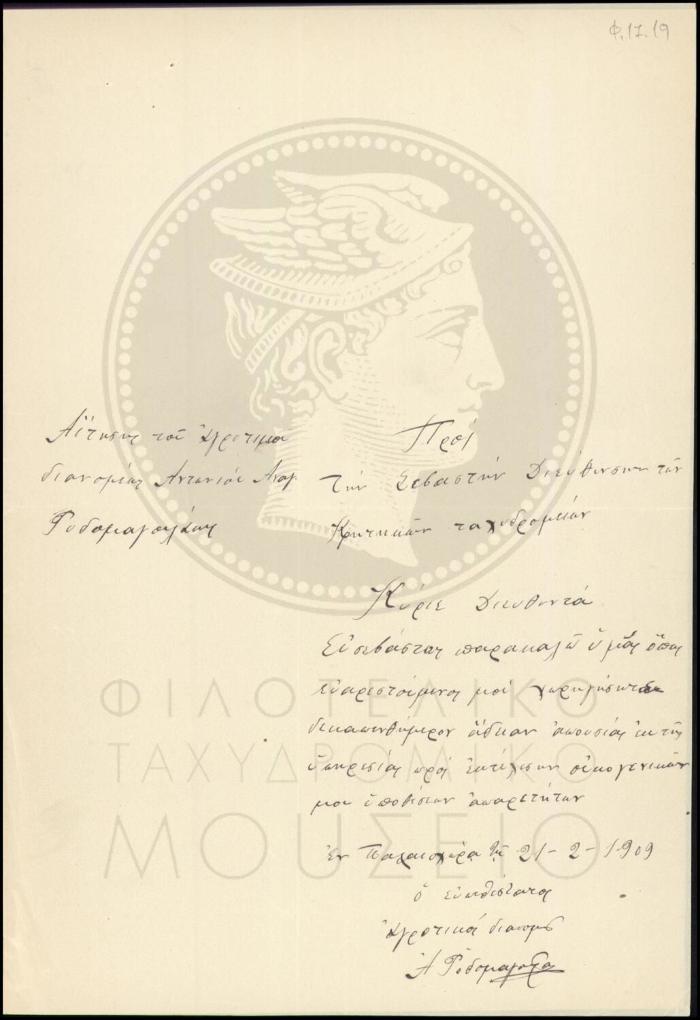 Φ.17.19
Αἴτησις τοῦ ἀγροτικοῦ
διανομέως Αντωνίου Αναγ.
Πρὸς
τὴν Σεβαστὴν Διεύθυνσιν τῶν
Κρητικῶν ταχυδρομείων
Κύριε Διευθυντά
Εὐσεβάστως παρακαλῶ ὑμᾶς ὅπως
εὐαρεστούμενος μοὶ χορηγήσητε
δεκαπενθήμερον ἄδειαν ἀπουσίας ἐκ τῆς
ὑπηρεσίας πρὸς ἐκτέλεσιν οἰκογενειακῶν
μου ὑποθέσεων ἀπαρετήτων
ἐν Παλαιοχώρᾳ τῇ 21-2-1909
ὁ εὐπειθέστατος
ἀγροτικὸς διανομεὺς
ΦΙΛΟΤΕΛΙΚΟ
ΤΑΧΥΔΡΟΜΙΚΟ
ΜΟΥΣΕΙΟ